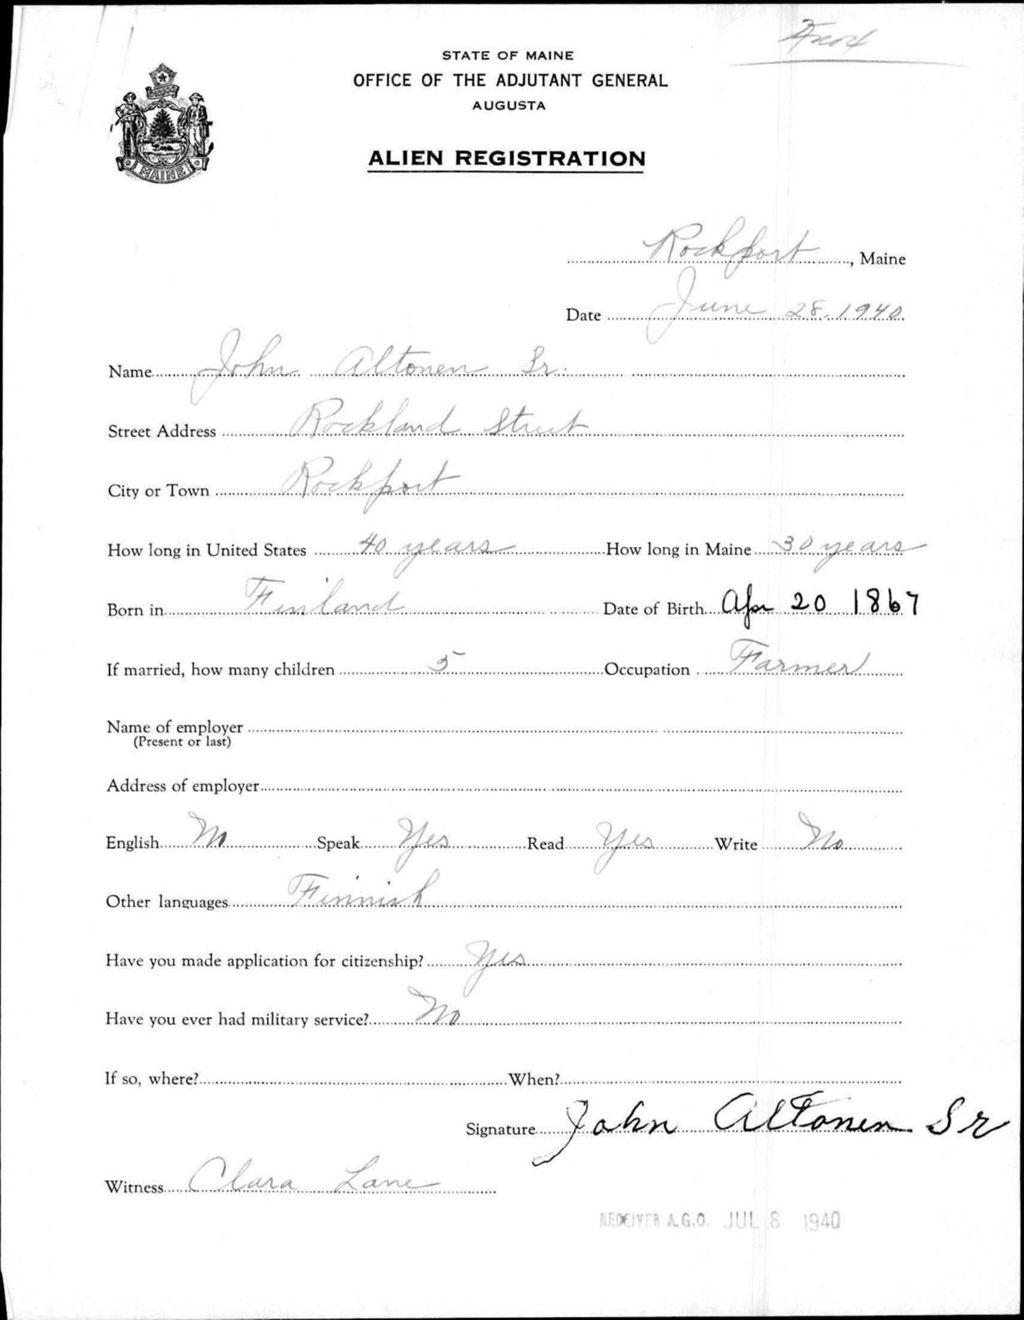 Knox
STATE OF MAINE
OFFICE OF THE ADJUTANT GENERAL
AUGUSTA
ALIEN REGISTRATION
MAINE
Rockport, Maine
Date June 28, 1940
Name John Altonen Sr.
Street Address Rockland Street
City or Town Rockport
How long in United States 40 years How long in Maine 30 years
Born in Finland Date of Birth Apr 20 1867
If married, how many children 5 Occupation Farmer
Name of employer
(Present or last)
Address of employer
English No Speak Yes Read Yes Write No
Other languages Finnish
Have you made application for citizenship? Yes
Have you ever had military service? No
If so, where? When?
Signature John Altonen Sr
Witness Clara Lane
A.G.O. JUL 8 1940